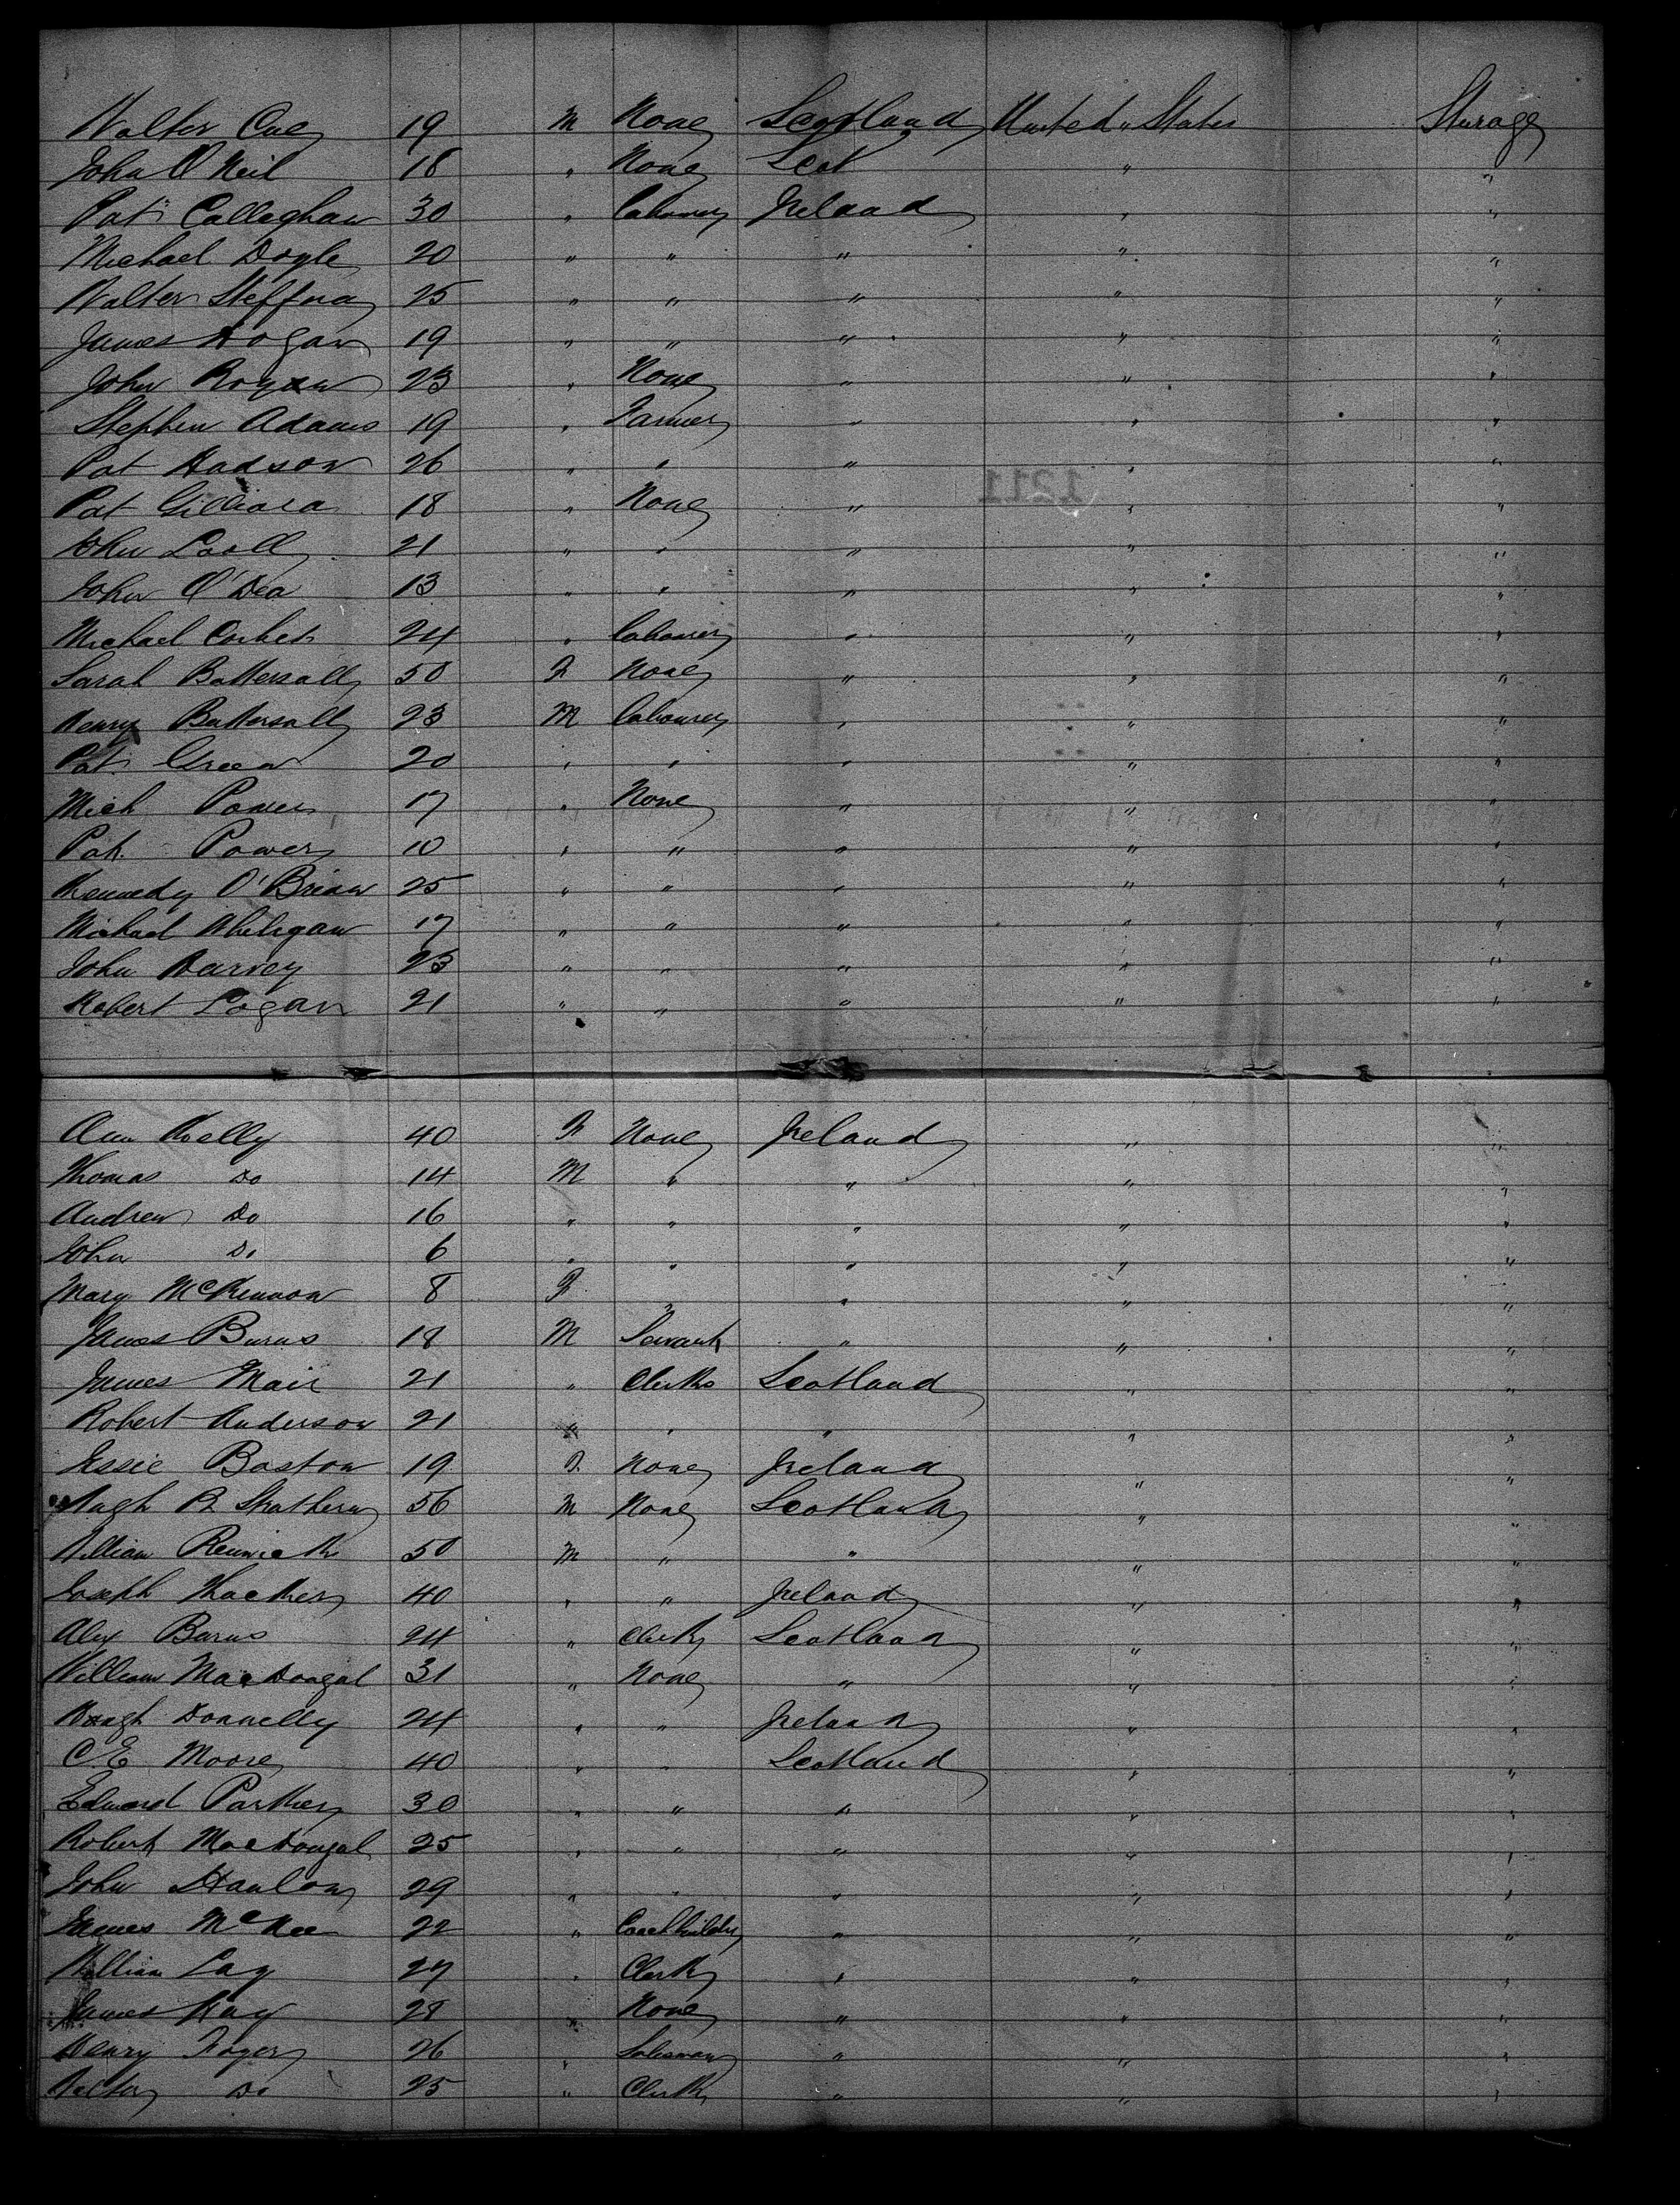 Walter Cae 19 M None Scotland United " States Sterage
John O'Neil 18 " None Scot " "
Pat Calleghan 30 " Labourer Ireland " "
Michael Doyle 20 " " " " "
Walter Steffna 25 " " " " "
James Hogan 19 " " " " "
John Rogan 23 " None " " "
Stephen Adams 19 " Farmer " " "
Pat Hadson 26 " " " " "
Pat Gilliara 18 " None " " "
1211
John 21 " " " " "
John O'Dea 13 " " " " "
Michael Corbet 24 " Labourer " " "
Sarah Battersall 50 F None " " "
Henry Battersall 23 M Labourer " " "
Pat Green 20 " " " " "
Mich Power 17 " None " " "
Pat. Power 10 " " " " "
Kennedy O'Brian 25 " " " " "
Michael Whelegan 17 " " " " "
John Harvey 23 " " " " "
Robert Logan 21 " " " " "
Ann Kelly 40 F None Ireland " "
Thomas Do 14 M " " " "
Andrew Do 16 " " " " "
John Do 6 " " " " "
Mary McKennon 8 F " " " "
James Burns 18 M Servant " " "
James Mair 21 " Clerk Scotland " "
Robert Anderson 21 " " " " "
Jessie Boston 19 F. None Ireland " "
Hugh B Strathern 56 M None Scotland " "
William Renwick 50 M " " " "
Joseph Thacker 40 " " Ireland " "
Alex Burns 24 " Clerk Scotland " "
William MacDougal 31 " None " " "
Hugh Donnelly 24 " " Ireland " "
C E Moore 40 " " Scotland " "
Edward Parker 30 " " " " "
Robert MacDougal 25 " " " " "
John Hanlon 29 " " " " "
James McKee 22 " Coachbuilder " " "
William Lay 27 " Clerk " " "
James Kay 28 " None " " "
Henry Foger 26 " Salesman " " "
Walter Do 25 " Clerk " " "